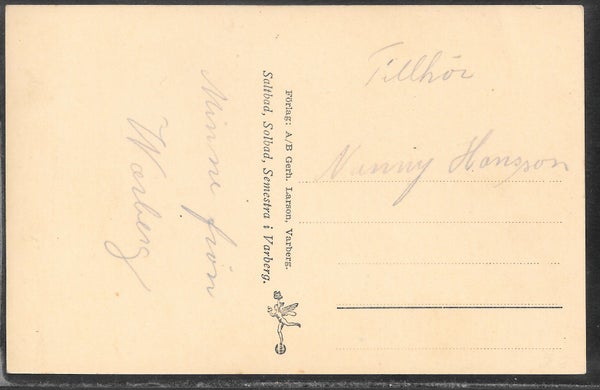 Minne från
Warberg
Saltbad, Solbad, Semestra i Varberg.
Förlag: A/B Gerh. Larson, Varberg.
Tillhör
Nanny Hansson